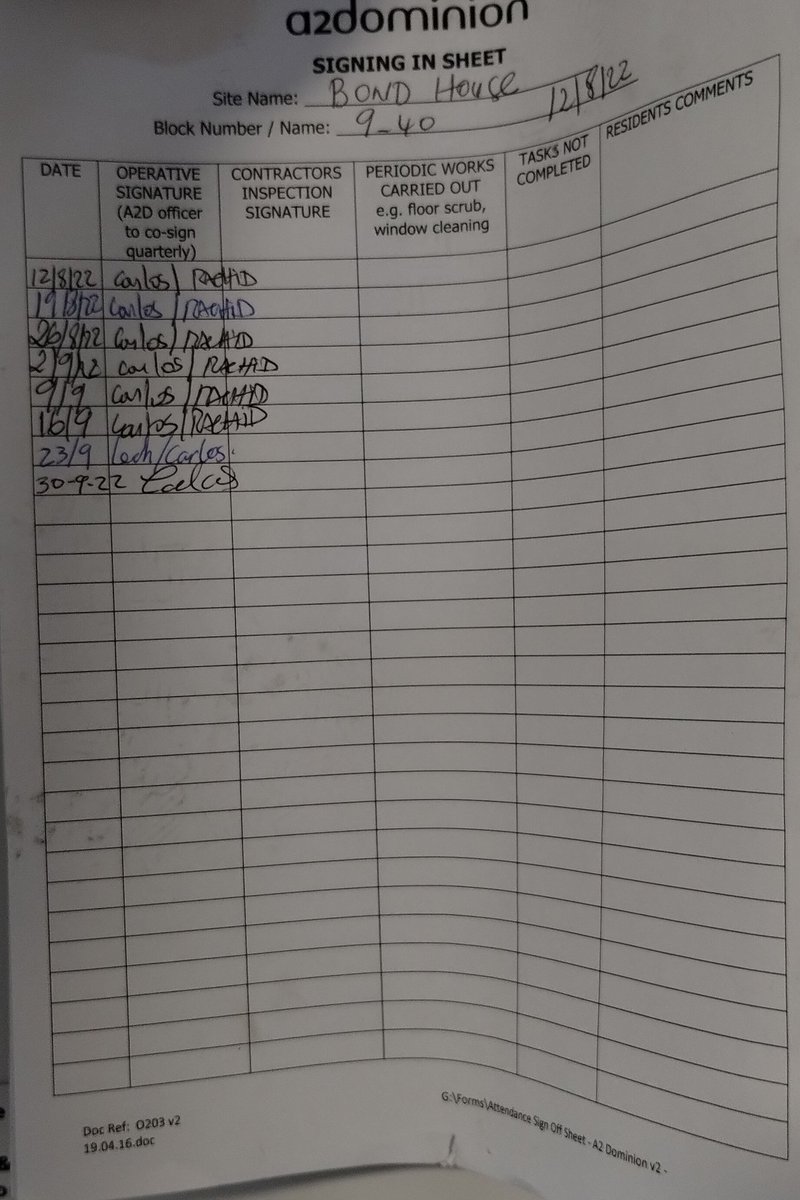 a2dominion
SIGNING IN SHEET
Site Name: BOND House 12/8/22
Block Number / Name: 9-40
DATE
OPERATIVE SIGNATURE (A2D officer to co-sign quarterly)
CONTRACTORS INSPECTION SIGNATURE
PERIODIC WORKS CARRIED OUT e.g. floor scrub, window cleaning
TASKS NOT COMPLETED
RESIDENTS COMMENTS
12/8/22 Carlos / RACHID
19/8/22 Carlos / RACHID
26/8/22 Carlos / RACHID
2/9/22 Carlos / RACHID
9/9 Carlos / RACHID
16/9 Carlos / RACHID
23/9 Lech/Carlos.
30-9-22
Doc Ref: O203 v2
19.04.16.doc
G:\Forms\Attendance Sign Off Sheet - A2 Dominion v2 -